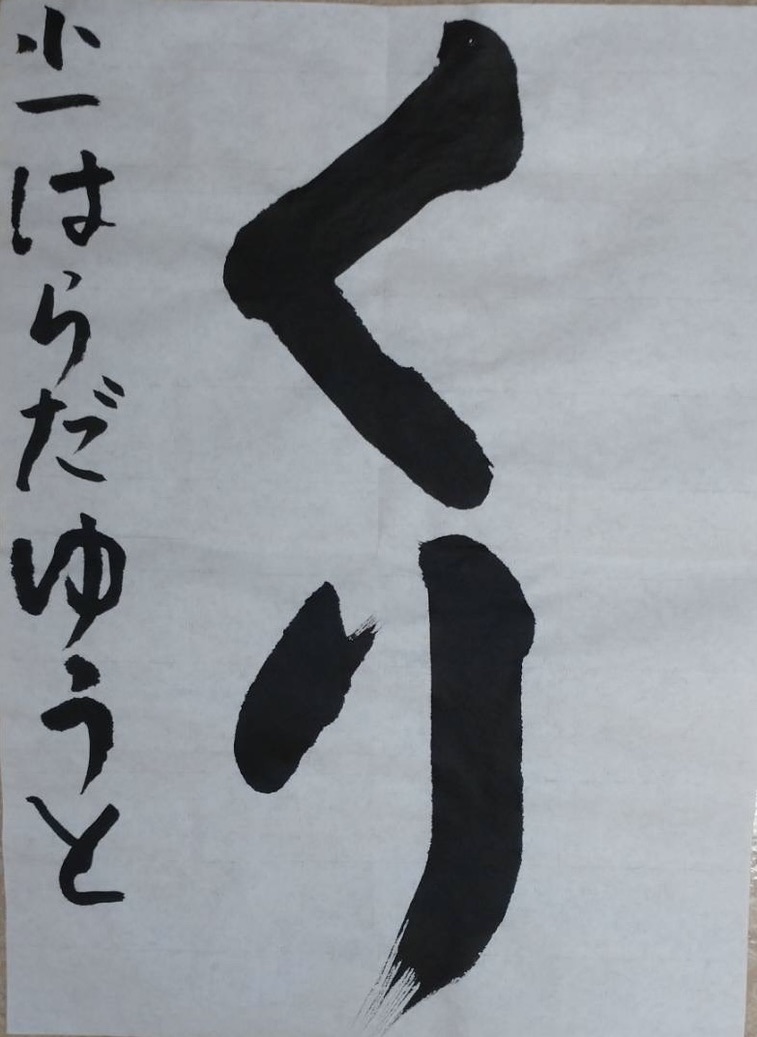 くり
小一はらだゆうと